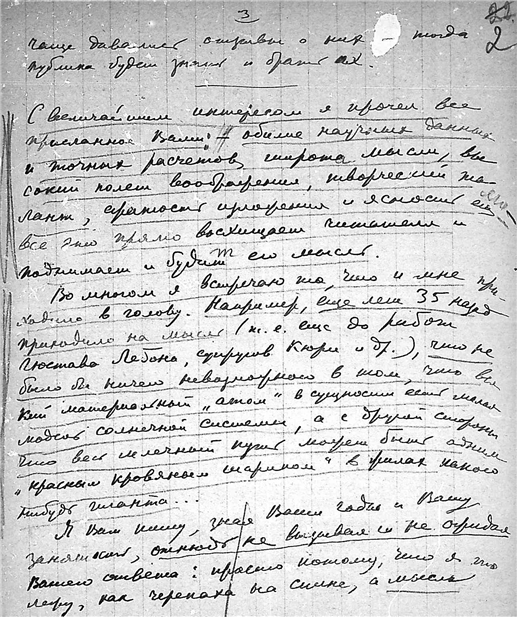 3
22
2
чаще давались отзывы о них – тогда
публика будет знать и брать их.
С величайшим интересом я прочел все
присланное Вами: обилие научных данных
и точных расчетов, широта мысли, вы
сокий полет воображения, творческий та
лант, краткость изложения и ясность его –
все это прямо восхищает читателя и
поднимает и будит его мысль.
Во многом я встречаю то, что и мне при
ходило в голову. Например, еще лет 35 назад
приходило на мысль (т. е. еще до работ
Гюстава Лебона, супругов Кюри и др.), что не
было бы ничего невозможного в том, что вся
кий материальный „атом" в сущности есть малая
модель солнечной системы, а с другой стороны
что весь млечный путь может быть одним
„красным кровяным шариком" в жилах какого
нибудь гиганта...
Я Вам пишу, зная Ваши годы и Вашу
занятость, отнюдь не вызывая и не ожидая
Вашего ответа: просто потому, что я
лежу, как черепаха на спине, а мысль